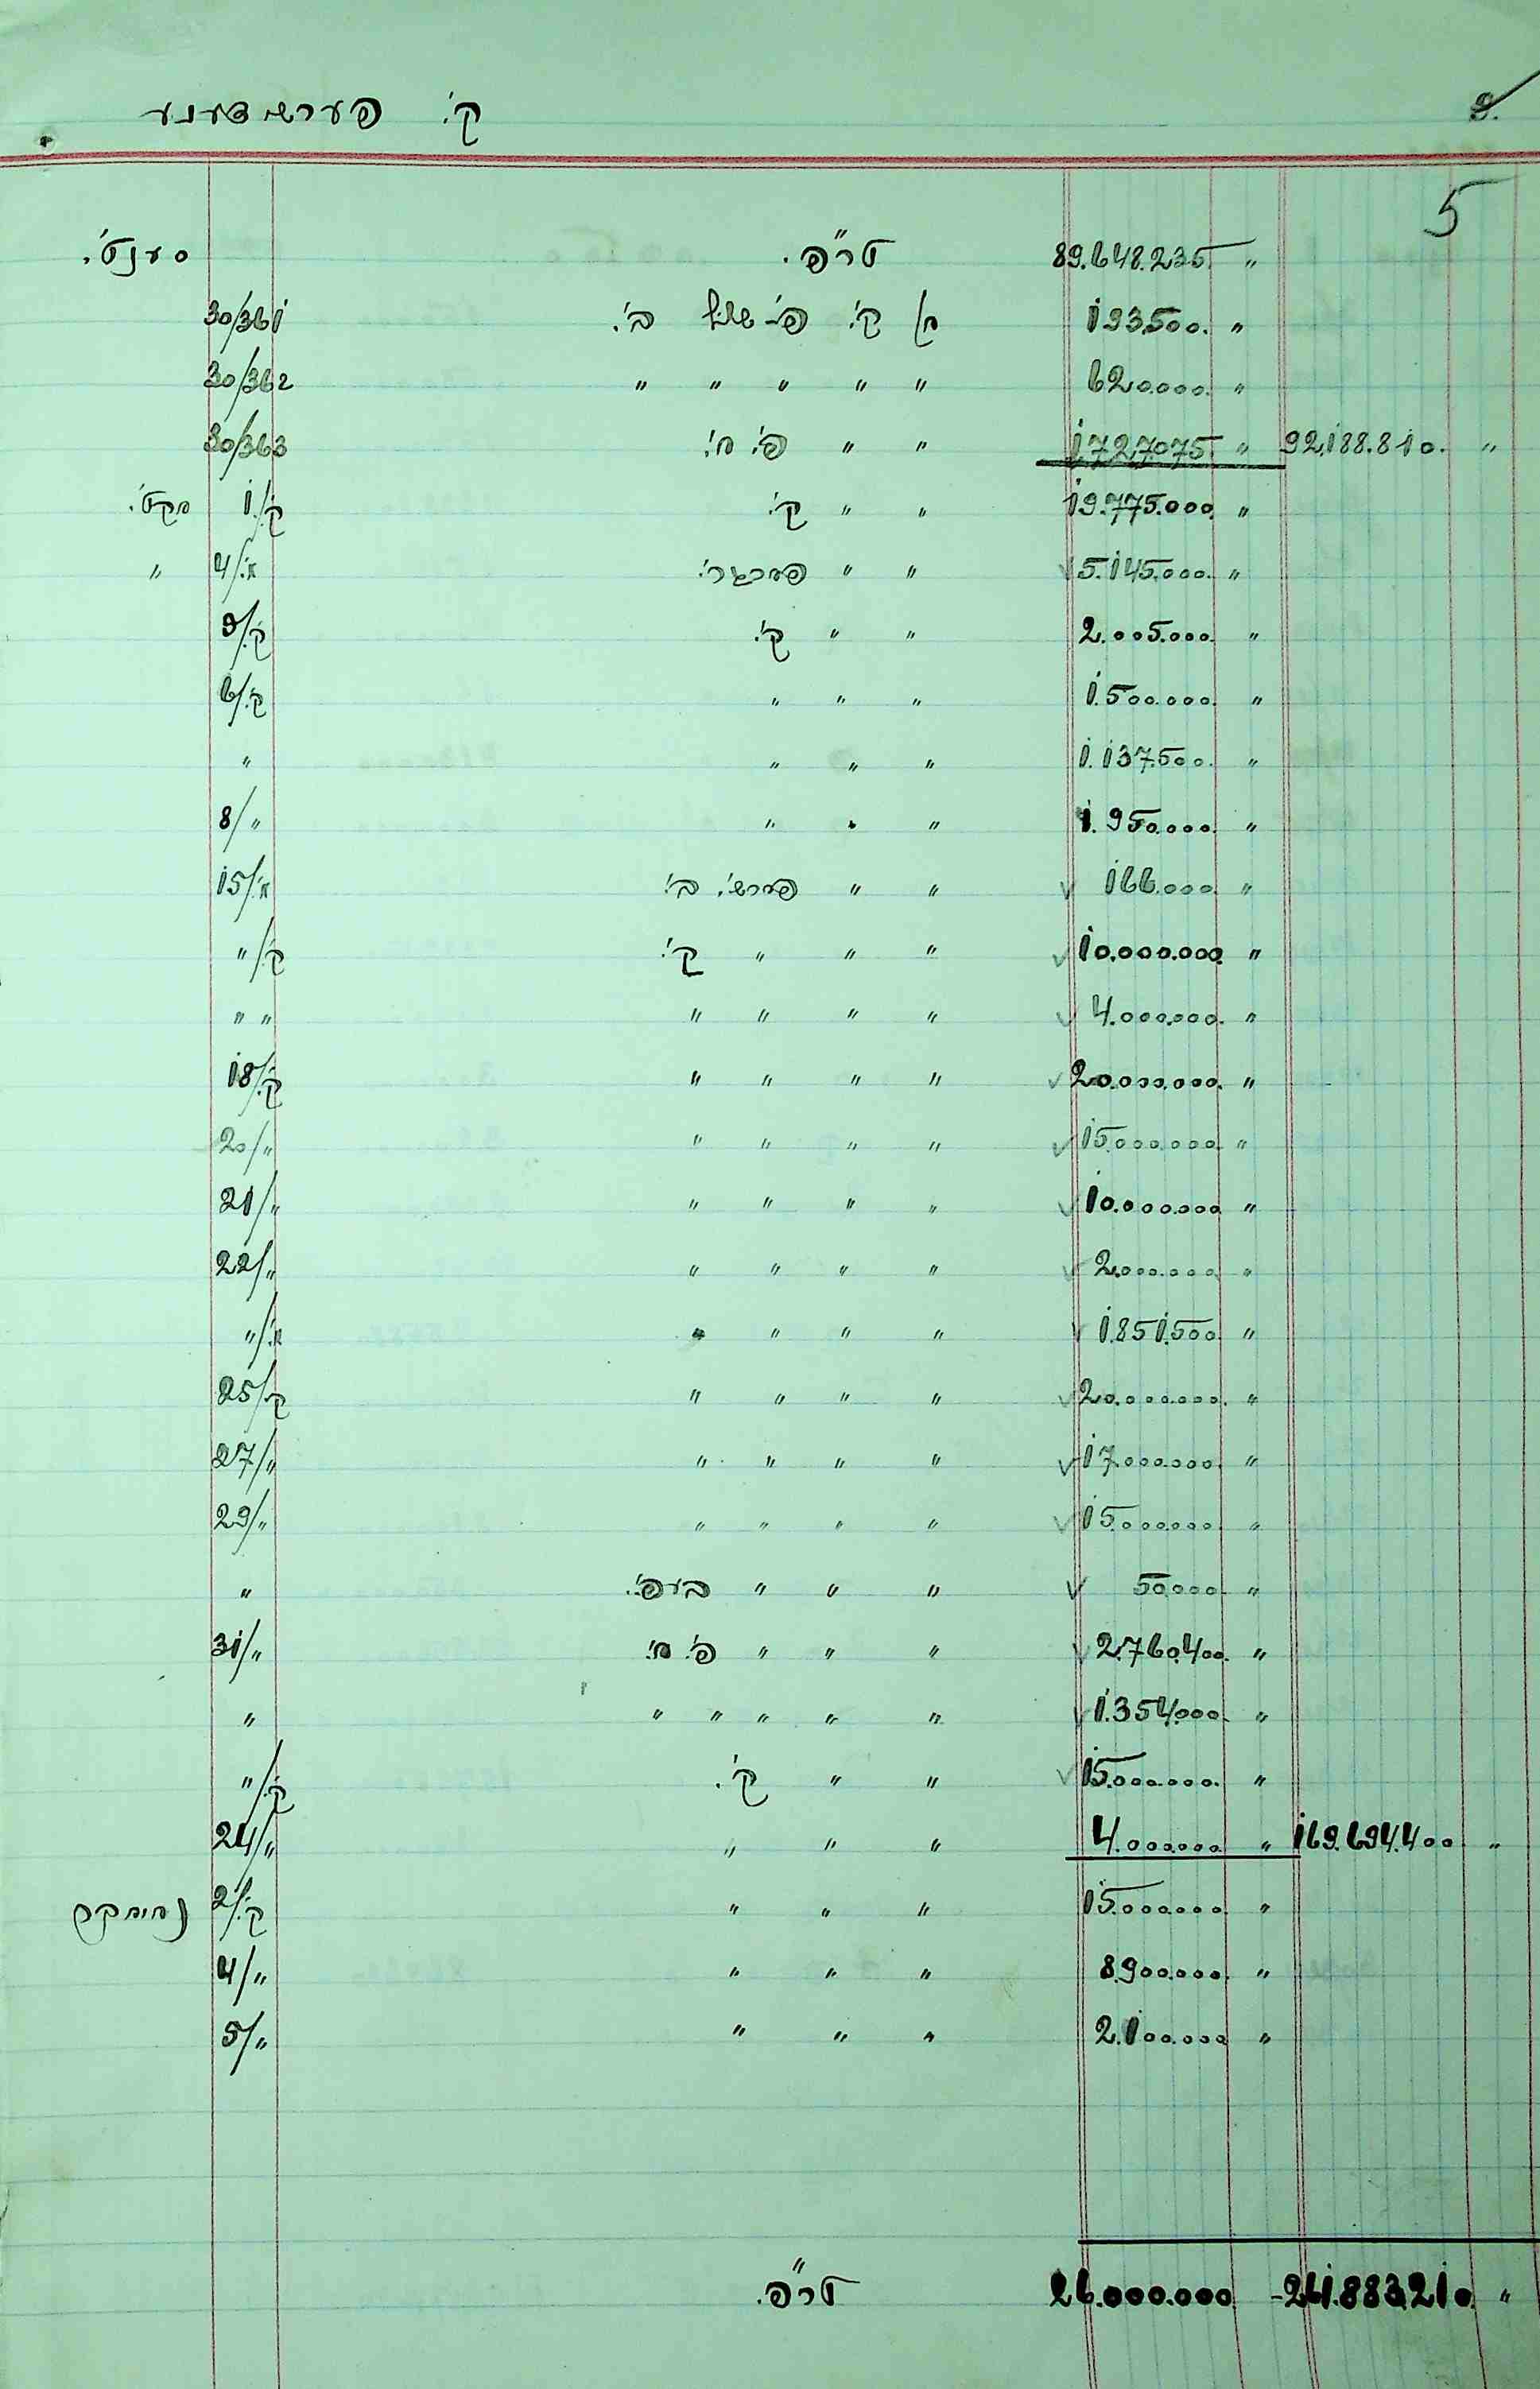 ק'. פערשידענע 9.
5
סענט'. טר"פ. 89.648.235 "
30/361 אן ק'. פ'. ב'. 193.500. "
30/362 " " " " " 620.000. "
30/363 " " פ'. ח'. 1.727.075 " 92.188.810. "
אקט'. 1/ק'. " " ק'. 19.775.000. "
" 4/א'. " " 5.145.000. "
9/ק'. " " ק'. 2.005.000. "
6/ק'. " " " 1.500.000. "
" " " " 1.137.500. "
8/" " " " 1.950.000. "
15/א'. " " פערש'. ב'. 166.000. "
"/ק'. " " " ק'. 10.000.000. "
" " " " " " 4.000.000. "
18/ק'. " " " " 20.000.000. "
20/" " " " " 15.000.000. "
21/" " " " " 10.000.000. "
22/" " " " " 2.000.000. "
"/א'. " " " " 1.851.500. "
25/ק'. " " " " 20.000.000. "
27/" " " " " 17.000.000. "
29/" " " " " 15.000.000. "
" " " " 50.000. "
31/" " " " פ'. ח'. 2.760.400. "
" " " " " " 1.354.000. "
"/ק'. " " ק'. 15.000.000. "
24/" " " " 4.000.000. " 169.694.400 "
2/ק'. " " " 15.000.000. "
4/" " " " 8.900.000. "
5/" " " " 2.100.000. "
טר"פ. 26.000.000. - 261.883.210. "